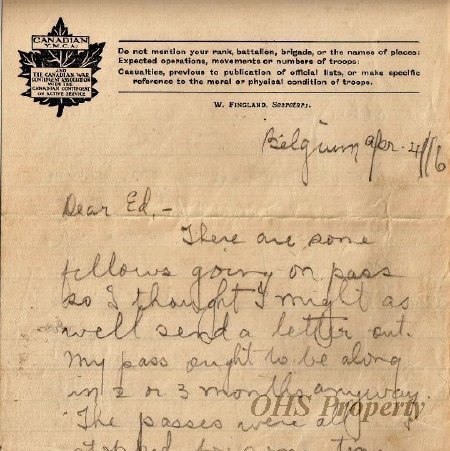 CANADIAN
Y.M.C.A.
AND
THE CANADIAN WAR
CONTINGENT ASSOCIATION
WITH THE
CANADIAN CONTINGENT
ON ACTIVE SERVICE
Do not mention your rank, battalion, brigade, or the names of places:
Expected operations, movements or numbers of troops:
Casualties, previous to publication of official lists, or make specific
reference to the moral or physical condition of troops.
W. FINGLAND, Secretary.
Belgium Apr. 4/16
Dear Ed,-
There are some
fellows going on pass
so I thought I might as
well send a letter out.
My pass ought to be along
in 2 or 3 months anyway
The passes were all
stopped for a time
OHS Property